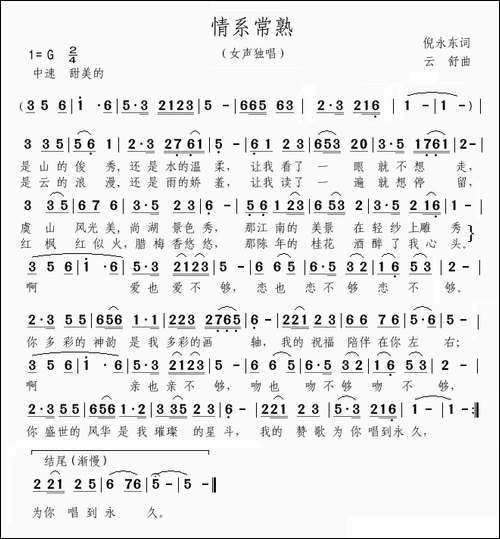 情系常熟
(女声独唱)
倪永东词
云 舒曲
1=G 2/4
中速 甜美的
(3 5 6 | i · 6 | 5·3 2123 | 5 - | 665 63 | 2·3 216 | 1 - | 1 - ) |
3 3 5 | 5 6 1 | 2·3 27 61 | 5 - | 6·1 23 | 653 20 | 3·5 1761 | 2 - |
是 山 的 俊 秀, 还 是 水的 温 柔, 让我 看 了 一 眼 就 不 想 走,
是 云 的 浪 漫, 还 是 雨的 娇 羞, 让我 读 了 一 遍 就 想 停 留,
3 3 5 | 6 7 6 | 3 3 5 | 6 - | 5 6 1 2 3 | 6 5 3 | 2·3 216 | 1 - |
虞 山 风光 美, 尚 湖 景色 秀, 那江 南的 美景 在 轻 纱 上雕 秀
红 枫 红 似火, 腊 梅 香悠 悠, 那陈 年的 桂花 酒 醉 了 我 心 头。
3 5 6 | i · 6 | 5·3 2123 | 5 - | 6 6 5 | 6 3 | 2·3 5 3 | 2 - |
啊 爱 也 爱 不 够, 恋 也 恋 不 够 恋 不 够。
2·3 5 5 | 6 5 6 | 1·1 2 3 | 223 2765 | 6 - | 221 2 3 | 6 6 7 6 | 5·6 | 5 - |
你 多 彩 的 神韵 是 我 多 彩的 画 轴, 我的 祝福 陪伴 在 你 左 右;
3 5 6 | i · 6 | 5·3 2123 | 5 - | 6 6 5 | 6·5 3 2 | 1 6 5 3 | 2 - |
啊 亲 也 亲 不 够, 吻 也 吻 不 够 吻 不 够,
2·3 5 5 | 656 1·2 | 3 35 2 3 | 6 - | 221 2 | 3·5 2 3 | 216 | 1 - | 1 - :||
你 盛世的 风华 是 我 璀璨 的 星 斗, 我 的 赞 歌 为 你 唱 到 永 久,
结尾(渐慢)
2 21 2 5 | 6 76 | 5 - | 5 - ||
为你 唱 到 永 久。